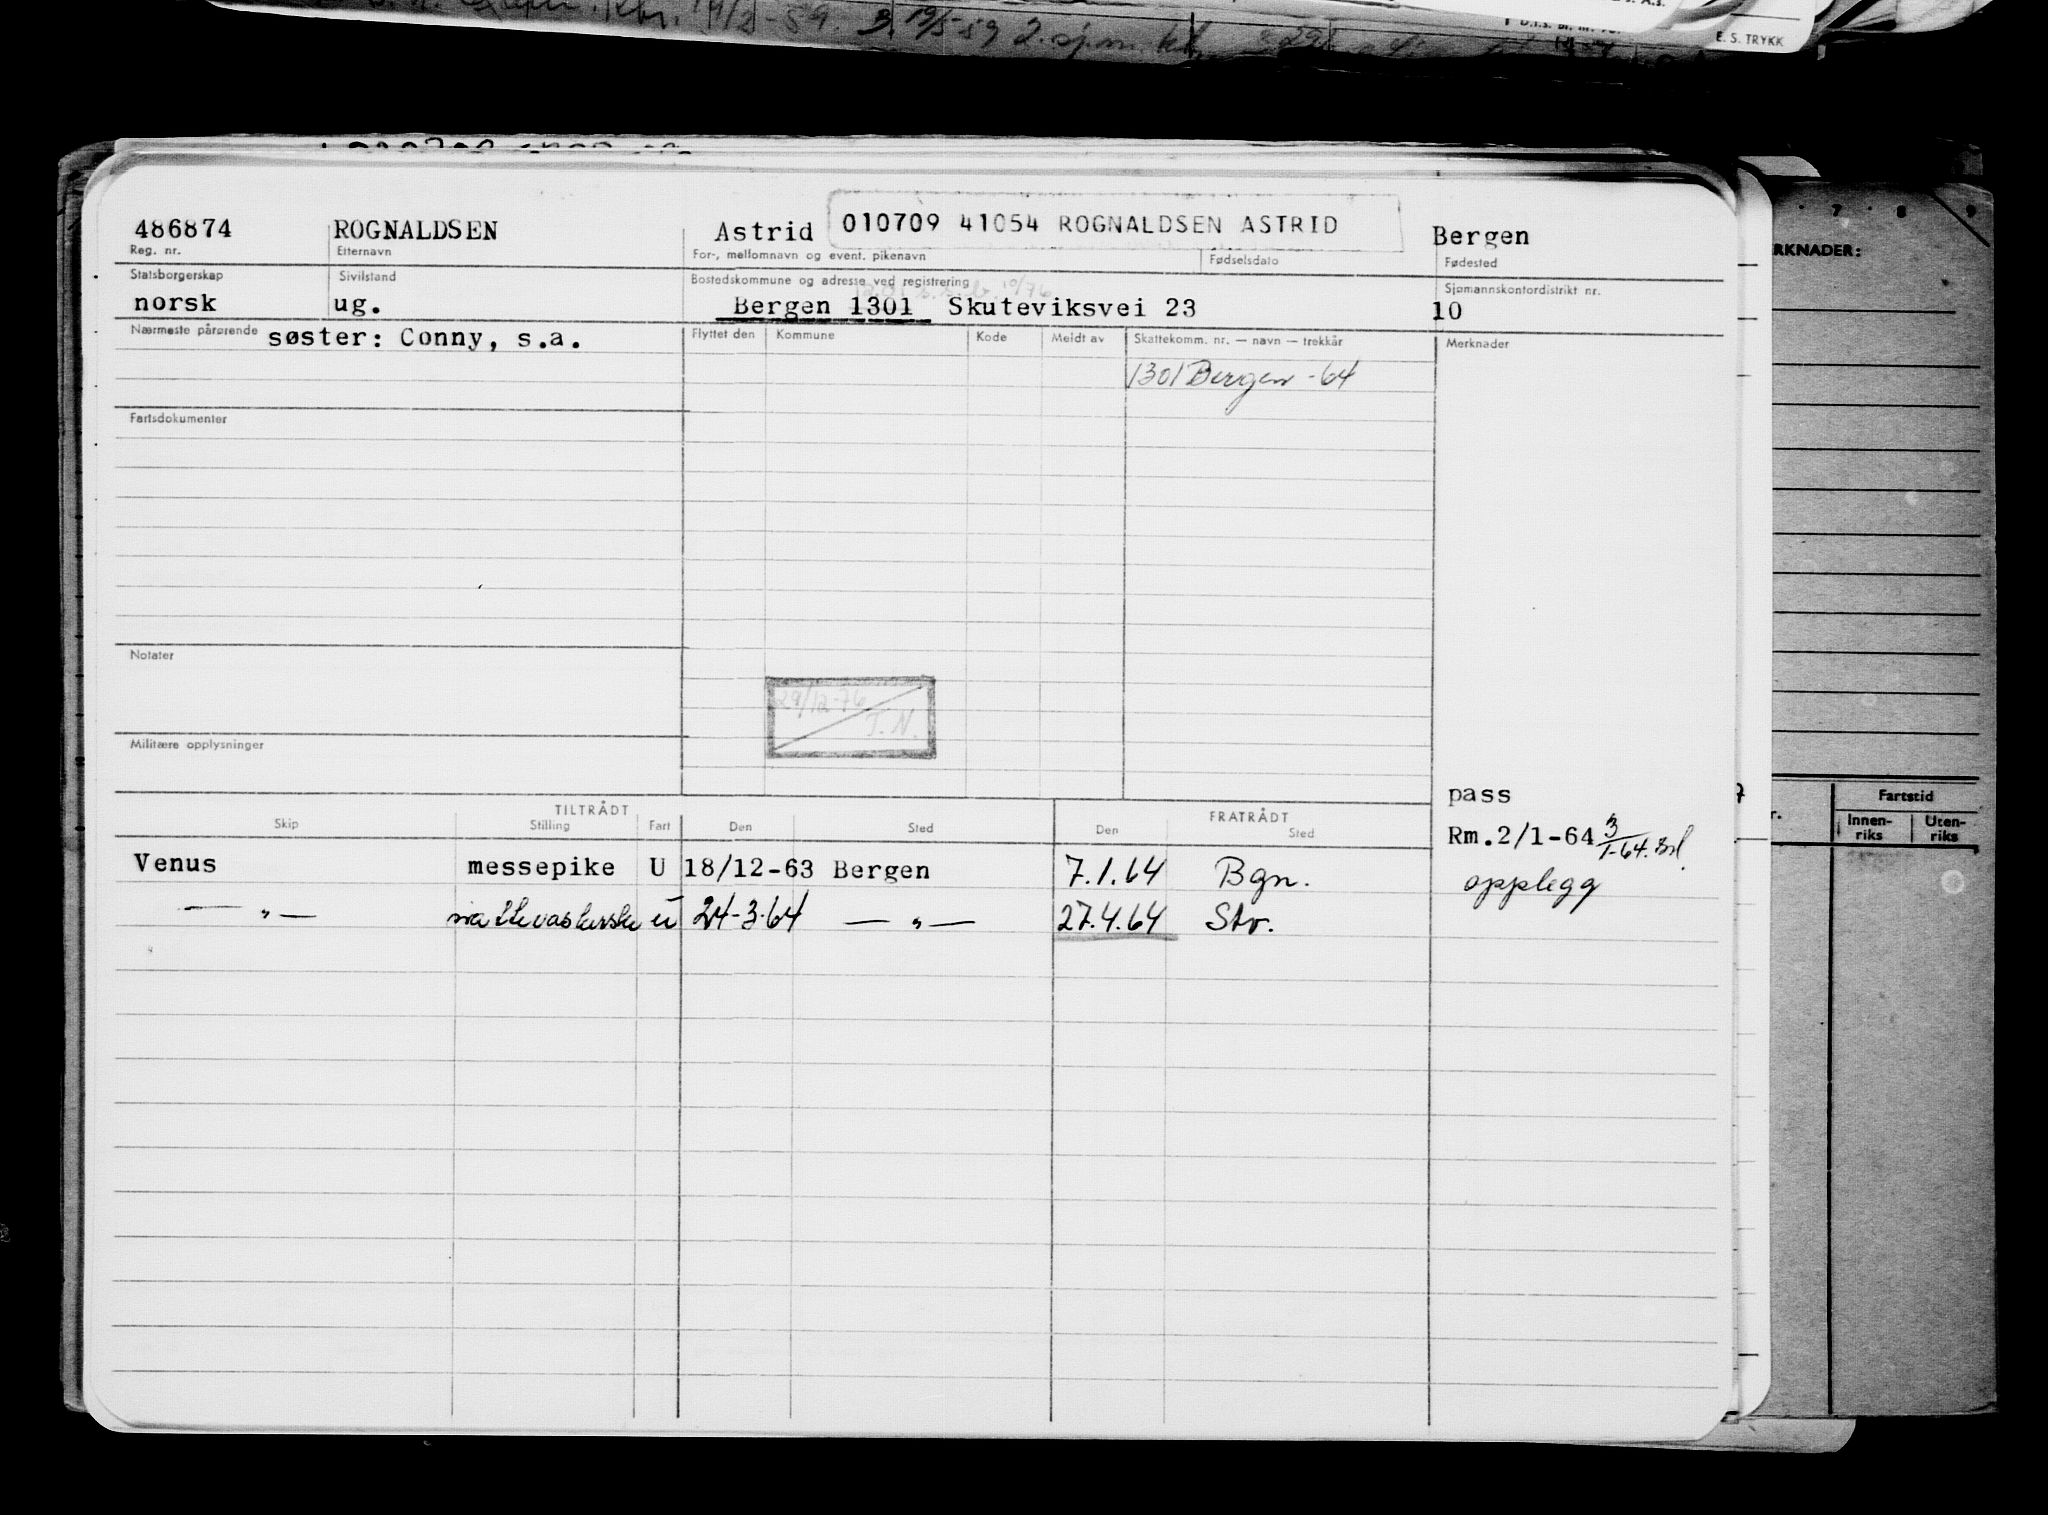 E. S. TRYKK
486874 ROGNALDSEN Astrid 010709 41054 ROGNALDSEN ASTRID Bergen
Reg. nr. Etternavn For-, mellomnavn og event. pikenavn Fødselsdato Fødested
Statsborgerskap Sivilstand Bostedskommune og adresse ved registrering Sjømannskontordistrikt nr.
norsk ug. Bergen 1301 Skuteviksvei 23 10
Nærmeste pårørende søster: Conny, s.a. Flyttet den Kommune Kode Meldt av Skattekomm. nr. — navn — trekkår Merknader
1301 Bergen -64
Fartsdokumenter
Notater
29/12-76
T.N.
Militære opplysninger
pass
TILTRÅDT FRATRÅDT
Skip Stilling Fart Den Sted Den Sted
Rm.2/1-64 3/1-64
Venus messepike U 18/12-63 Bergen 7.1.64 Bgn.
opplegg
— " — U 24-3-64 — " — 27.4.64 Stv.
7 8 9
RKNADER:
Fartstid
Innen-
riks
Uten-
riks